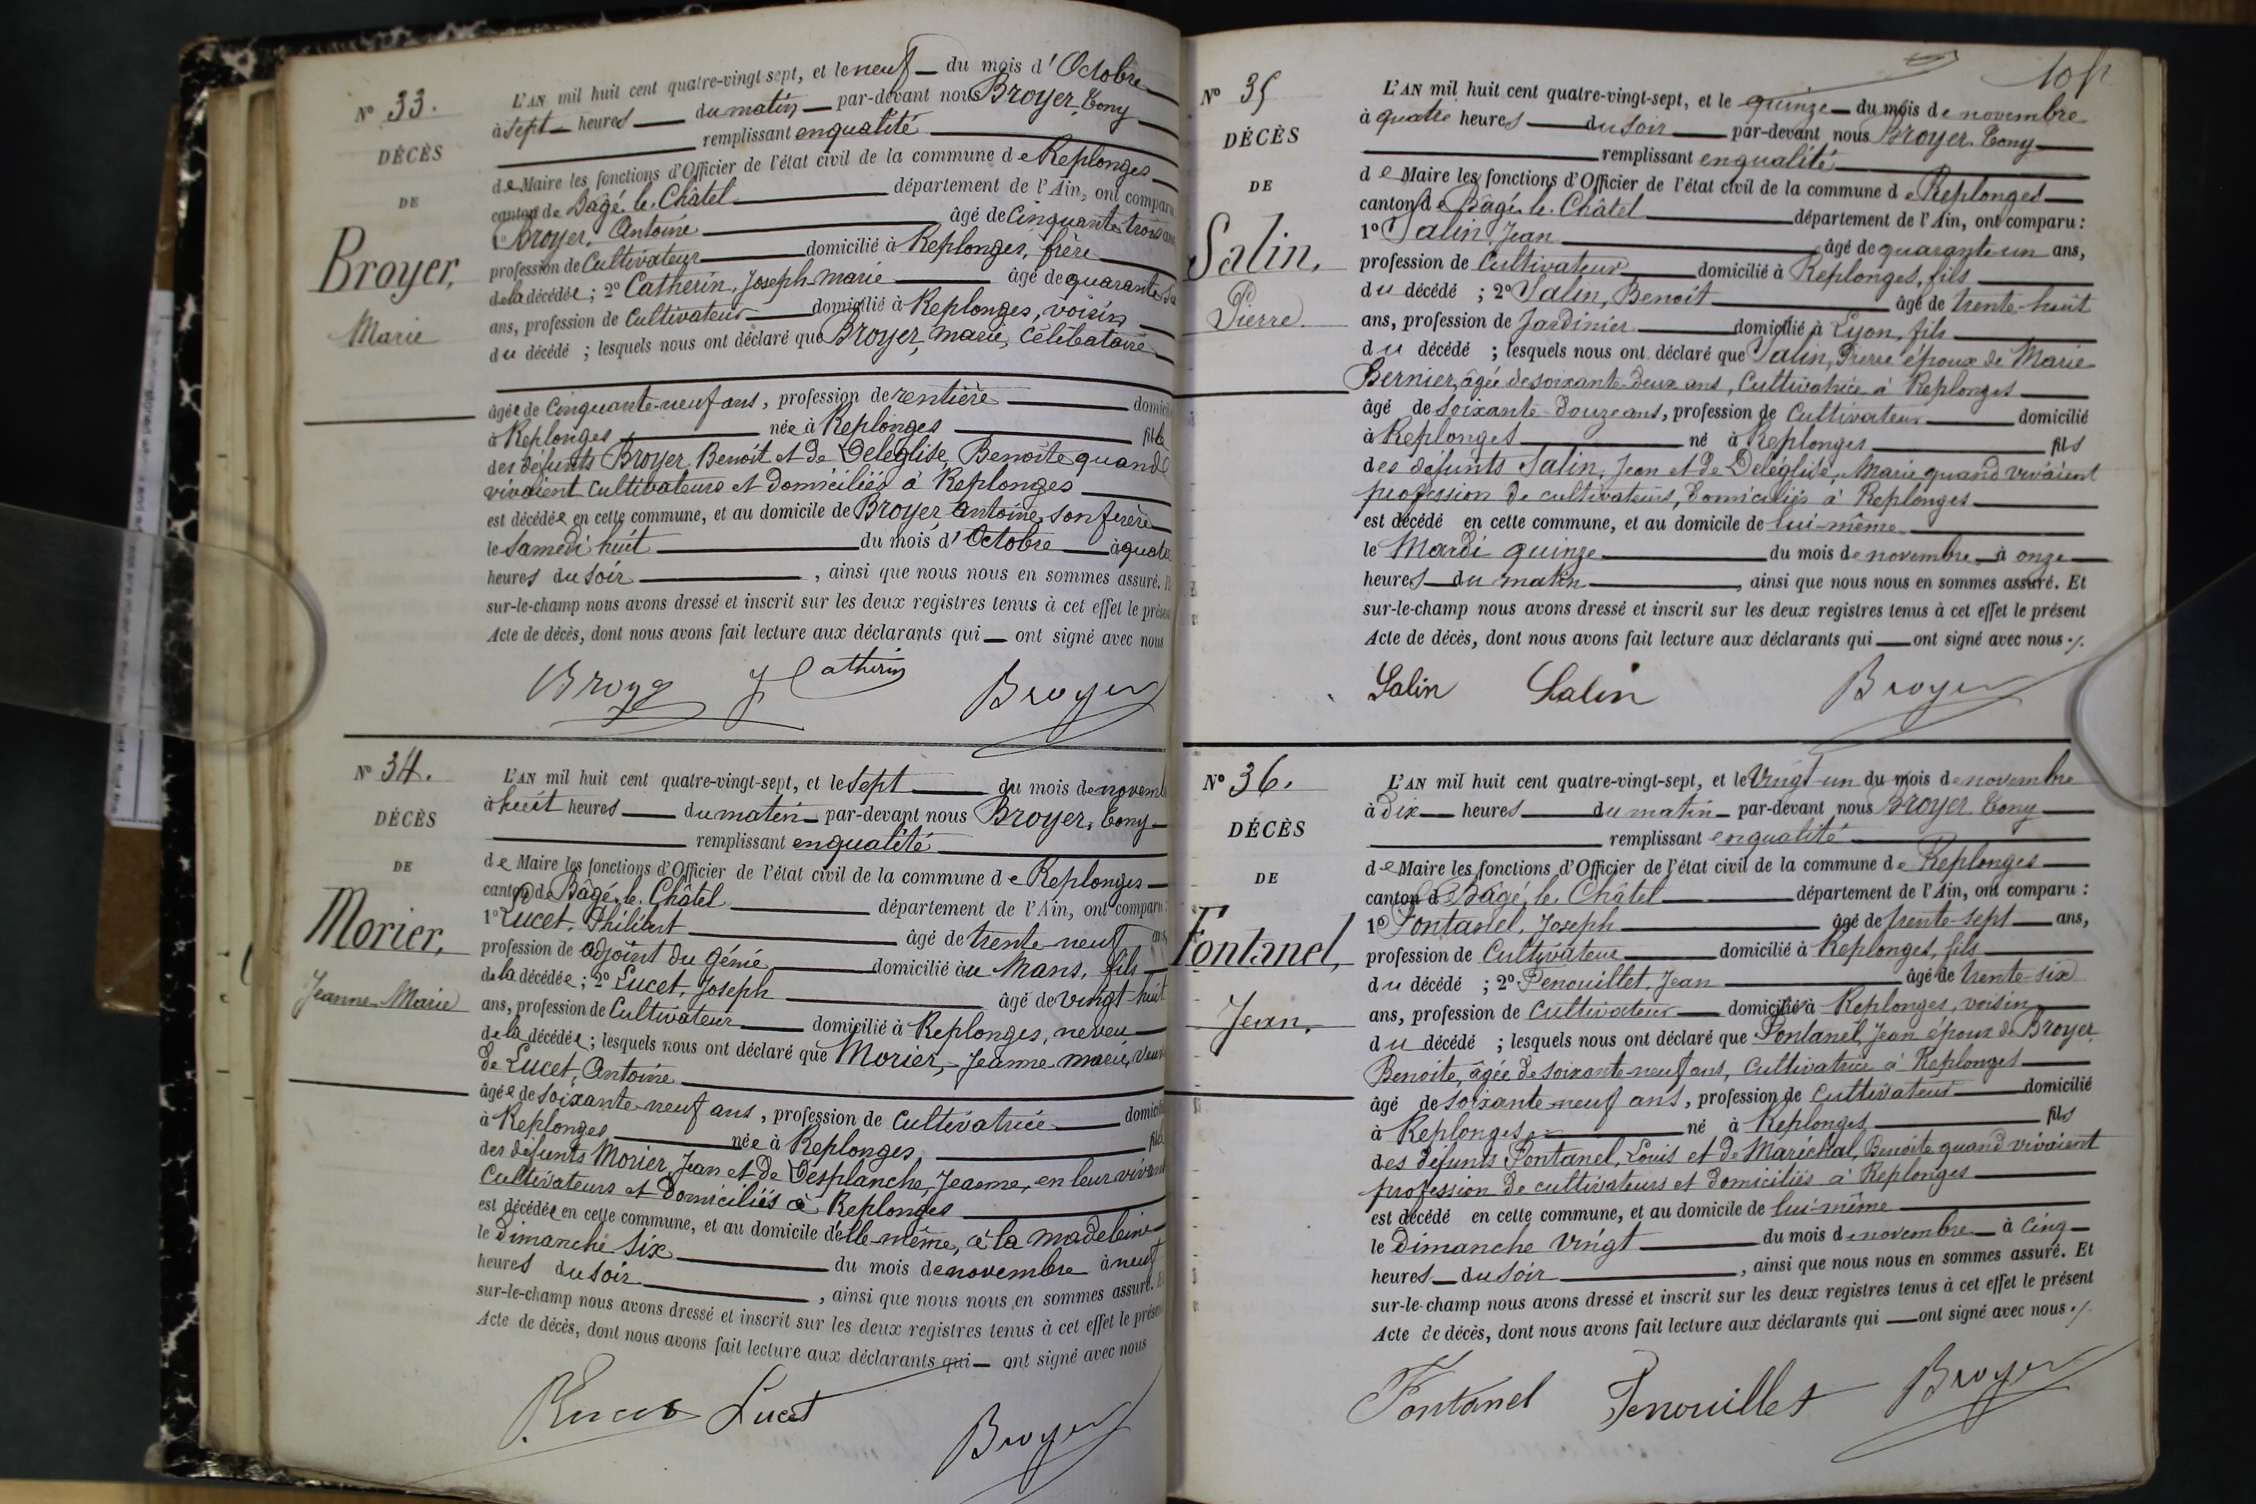 N° 33.
DÉCÈS
DE
Broyer,
Marie
L'AN mil huit cent quatre-vingt sept, et le neuf du mois d'Octobre
à sept heures du matin par-devant nous Broyer, Tony
remplissant en qualité
de Maire les fonctions d'Officier de l'état civil de la commune de Replonges
canton de Bâgé-le-Châtel département de l'Ain, ont comparu
1° Broyer, Antoine âgé de Cinquante trois ans
profession de Cultivateur domicilié à Replonges, frère
de la décédée ; 2° Catherin, Joseph-marie âgé de quarante
ans, profession de Cultivateur domicilié à Replonges, voisin
du décédé ; lesquels nous ont déclaré que Broyer, marie, Célibataire
âgée de Cinquante-neuf ans, profession de rentière domici
à Replonges née à Replonges fille
des défunts Broyer, Benoît et de Deléglise, Benoîte quand
vivaient cultivateurs et domiciliés à Replonges
est décédée en cette commune, et au domicile de Broyer Antoine, son frère
le Samedi huit du mois d'Octobre à quatre
heures du Soir, ainsi que nous nous en sommes assuré. E
sur-le-champ nous avons dressé et inscrit sur les deux registres tenus à cet effet le présen
Acte de décès, dont nous avons fait lecture aux déclarants qui ont signé avec nous
Broye J Catherin Broyer
N° 34.
DÉCÈS
DE
Morier,
Jeanne-Marie
L'AN mil huit cent quatre-vingt-sept, et le sept du mois de novem
à huit heures du matin par-devant nous Broyer, Tony
remplissant en qualité
de Maire les fonctions d'Officier de l'état civil de la commune de Replonges
canton de Bâgé-le-Châtel département de l'Ain, ont comparu :
1° Lucet, Philibert âgé de trente neuf ans,
profession de adjoint du Génie domicilié au Mans, fils
de la décédée ; 2° Lucet, Joseph âgé de vingt-huit
ans, profession de Cultivateur domicilié à Replonges, neveu
de la décédée ; lesquels nous ont déclaré que Morier, Jeanne marie, veuve
de Lucet, Antoine
âgée de soixante-neuf ans, profession de Cultivatrice domici
à Replonges née à Replonges, fille
des défunts Morier, Jean et de Desplanche, Jeanne, en leur vivant
Cultivateurs et Domiciliés à Replonges
est décédée en cette commune, et au domicile d'elle-même, à la madeleine
le Dimanche six du mois de novembre à neuf
heures du soir, ainsi que nous nous en sommes assuré. E
sur-le-champ nous avons dressé et inscrit sur les deux registres tenus à cet effet le présen
Acte de décès, dont nous avons fait lecture aux déclarants qui ont signé avec nous
Lucet Broyer
N° 35
DÉCÈS
DE
Salin,
Pierre
L'AN mil huit cent quatre-vingt-sept, et le quinze du mois de novembre
à quatre heures du soir par-devant nous Broyer Tony
remplissant en qualité
de Maire les fonctions d'Officier de l'état civil de la commune de Replonges
canton de Bâgé-le-Châtel département de l'Ain, ont comparu :
1° Salin, Jean âgé de quarante-un ans,
profession de Cultivateur domicilié à Replonges, fils
du décédé ; 2° Salin, Benoît âgé de trente-huit
ans, profession de Jardinier domicilié à Lyon, fils
du décédé ; lesquels nous ont déclaré que Salin, Pierre époux de Marie
Bernier, âgée de soixante-deux ans, Cultivatrice à Replonges
âgé de soixante-douze ans, profession de Cultivateur domicilié
à Replonges né à Replonges fils
des défunts Salin, Jean et de Deléglise, Marie quand vivaient
profession de cultivateurs, domiciliés à Replonges
est décédé en cette commune, et au domicile de lui-même
le Mardi quinze du mois de novembre à onze
heures du matin, ainsi que nous nous en sommes assuré. Et
sur-le-champ nous avons dressé et inscrit sur les deux registres tenus à cet effet le présent
Acte de décès, dont nous avons fait lecture aux déclarants qui ont signé avec nous ./.
Salin Salin Broyer
N° 36.
DÉCÈS
DE
Fontanel,
Jean.
L'AN mil huit cent quatre-vingt-sept, et le Vingt-un du mois de novembre
à dix heures du matin par-devant nous Broyer Tony
remplissant en qualité
de Maire les fonctions d'Officier de l'état civil de la commune de Replonges
canton de Bâgé-le-Châtel département de l'Ain, ont comparu :
1° Fontanel, Joseph âgé de trente-sept ans,
profession de Cultivateur domicilié à Replonges, fils
du décédé ; 2° Penouillet, Jean âgé de trente-six
ans, profession de Cultivateur domicilié à Replonges, voisin
du décédé ; lesquels nous ont déclaré que Fontanel, Jean époux de Broyer
Benoite, âgée de soixante-neuf ans, Cultivatrice à Replonges
âgé de soixante-neuf ans, profession de Cultivateur domicilié
à Replonges né à Replonges fils
des défunts Fontanel, Louis et de Maréchal, Benoite quand vivaient
profession de cultivateurs et domiciliés à Replonges
est décédé en cette commune, et au domicile de lui-même
le Dimanche vingt du mois de novembre à cinq
heures du soir, ainsi que nous nous en sommes assuré. Et
sur-le-champ nous avons dressé et inscrit sur les deux registres tenus à cet effet le présent
Acte de décès, dont nous avons fait lecture aux déclarants qui ont signé avec nous ./.
Fontanel Penouillet Broyer